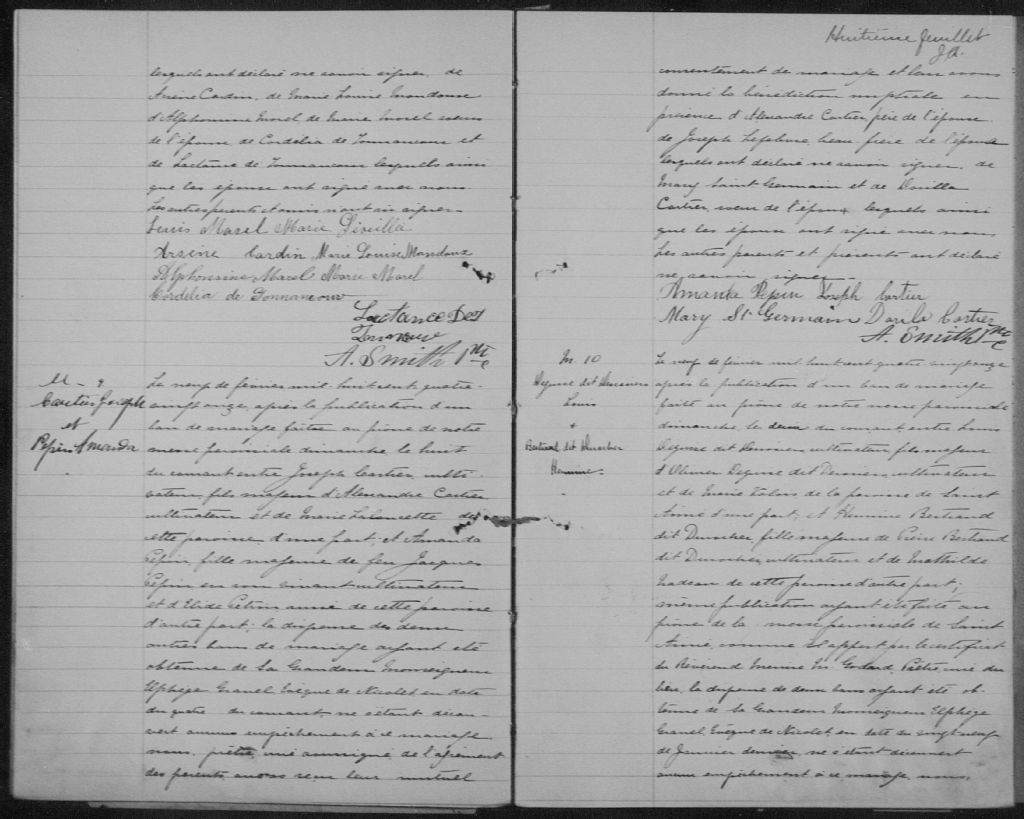 lesquels ont déclaré ne savoir signer. de
Arsène Cardin, de Marie Louise Mondoux
d'Alphonsine Morel de Marie Morel soeurs
de l'épouse de Cordélia de Tonnancour et
de Lactance de Tonnancour lesquels ainsi
que les époux ont signé avec nous.
Les autres parents et amis n'ont su signer.
Louis Marel Marie
Arsène Cardin Marie Louise Mondoux
Alphonsine Marel Marie Marel
Cordélia de Tonnancour
Lactance De T
Tonancour
A. Smith Ptre
M - 9
Cartier Joseph
et
Pepin Amanda
Le neuf de février mil huit cent quatre-
vingt onze, après la publication d'un
ban de mariage faite au prône de notre
messe paroissiale dimanche le huit
du courant entre Joseph Cartier, culti-
vateur, fils majeur d'Alexandre Cartier
cultivateur et de Marie Lalancette de
cette paroisse d'une part; et Amanda
Pepin, fille majeure de feu Jacques
Pepin en son vivant cultivateur
et d'Elide de cette paroisse
d'autre part; la dispense des deux
autres bans de mariage ayant été
obtenue de Sa Grandeur Monseigneur
Elphège Gravel Evêque de Nicolet en date
du quatre du courant, ne s'étant décou-
vert aucun empêchement à ce mariage
nous, prêtre curé soussigné de l'agrément
des parents, avons reçu leur mutuel
Huitième feuillet
J.A.
consentement de mariage et leur avons
donné la bénédiction nuptiale en
présence d'Alexandre Cartier, père de l'époux
de Joseph Lefebvre, beau frère de l'époux
lesquels ont déclaré ne savoir signer. de
Mary Saint Germain et de Dorilla
Cartier, soeur de l'époux lesquels ainsi
que les époux ont signé avec nous
Les autres parents et présents ont déclaré
ne savoir signer.
Amanda Pepin Joseph Cartier
Mary St Germain Dorila Cartier
A. Smith Ptre
M 10
Louis
+
Bertrand dit Durocher
Hermine
Le neuf de février mil huit cent quatre vingt onze
après la publication d'un ban de mariage
faite au prône de notre messe paroissiale
dimanche, le deux du courant, entre Louis
cultivateur, fils majeur
d'Olivier cultivateur
et de Marie Valois de la paroisse de Saint
Aimé d'une part; et Hermine Bertrand
dit Durocher, fille majeure de Pierre Bertrand
dit Durocher, cultivateur et de Mathilde
Nadeau de cette paroisse d'autre part;
même publication ayant été faite au
prône de la messe paroissiale de Saint
Aimé, comme il appert par le certificat
du Révérend Messire Godard, Prêtre curé du
lieu, la dispense de deux bans ayant été ob-
tenue de Sa Grandeur Monseigneur Elphège
Gravel Evêque de Nicolet, en date du vingt neuf
de Janvier dernier, ne s'étant découvert
aucun empêchement à ce mariage, nous,